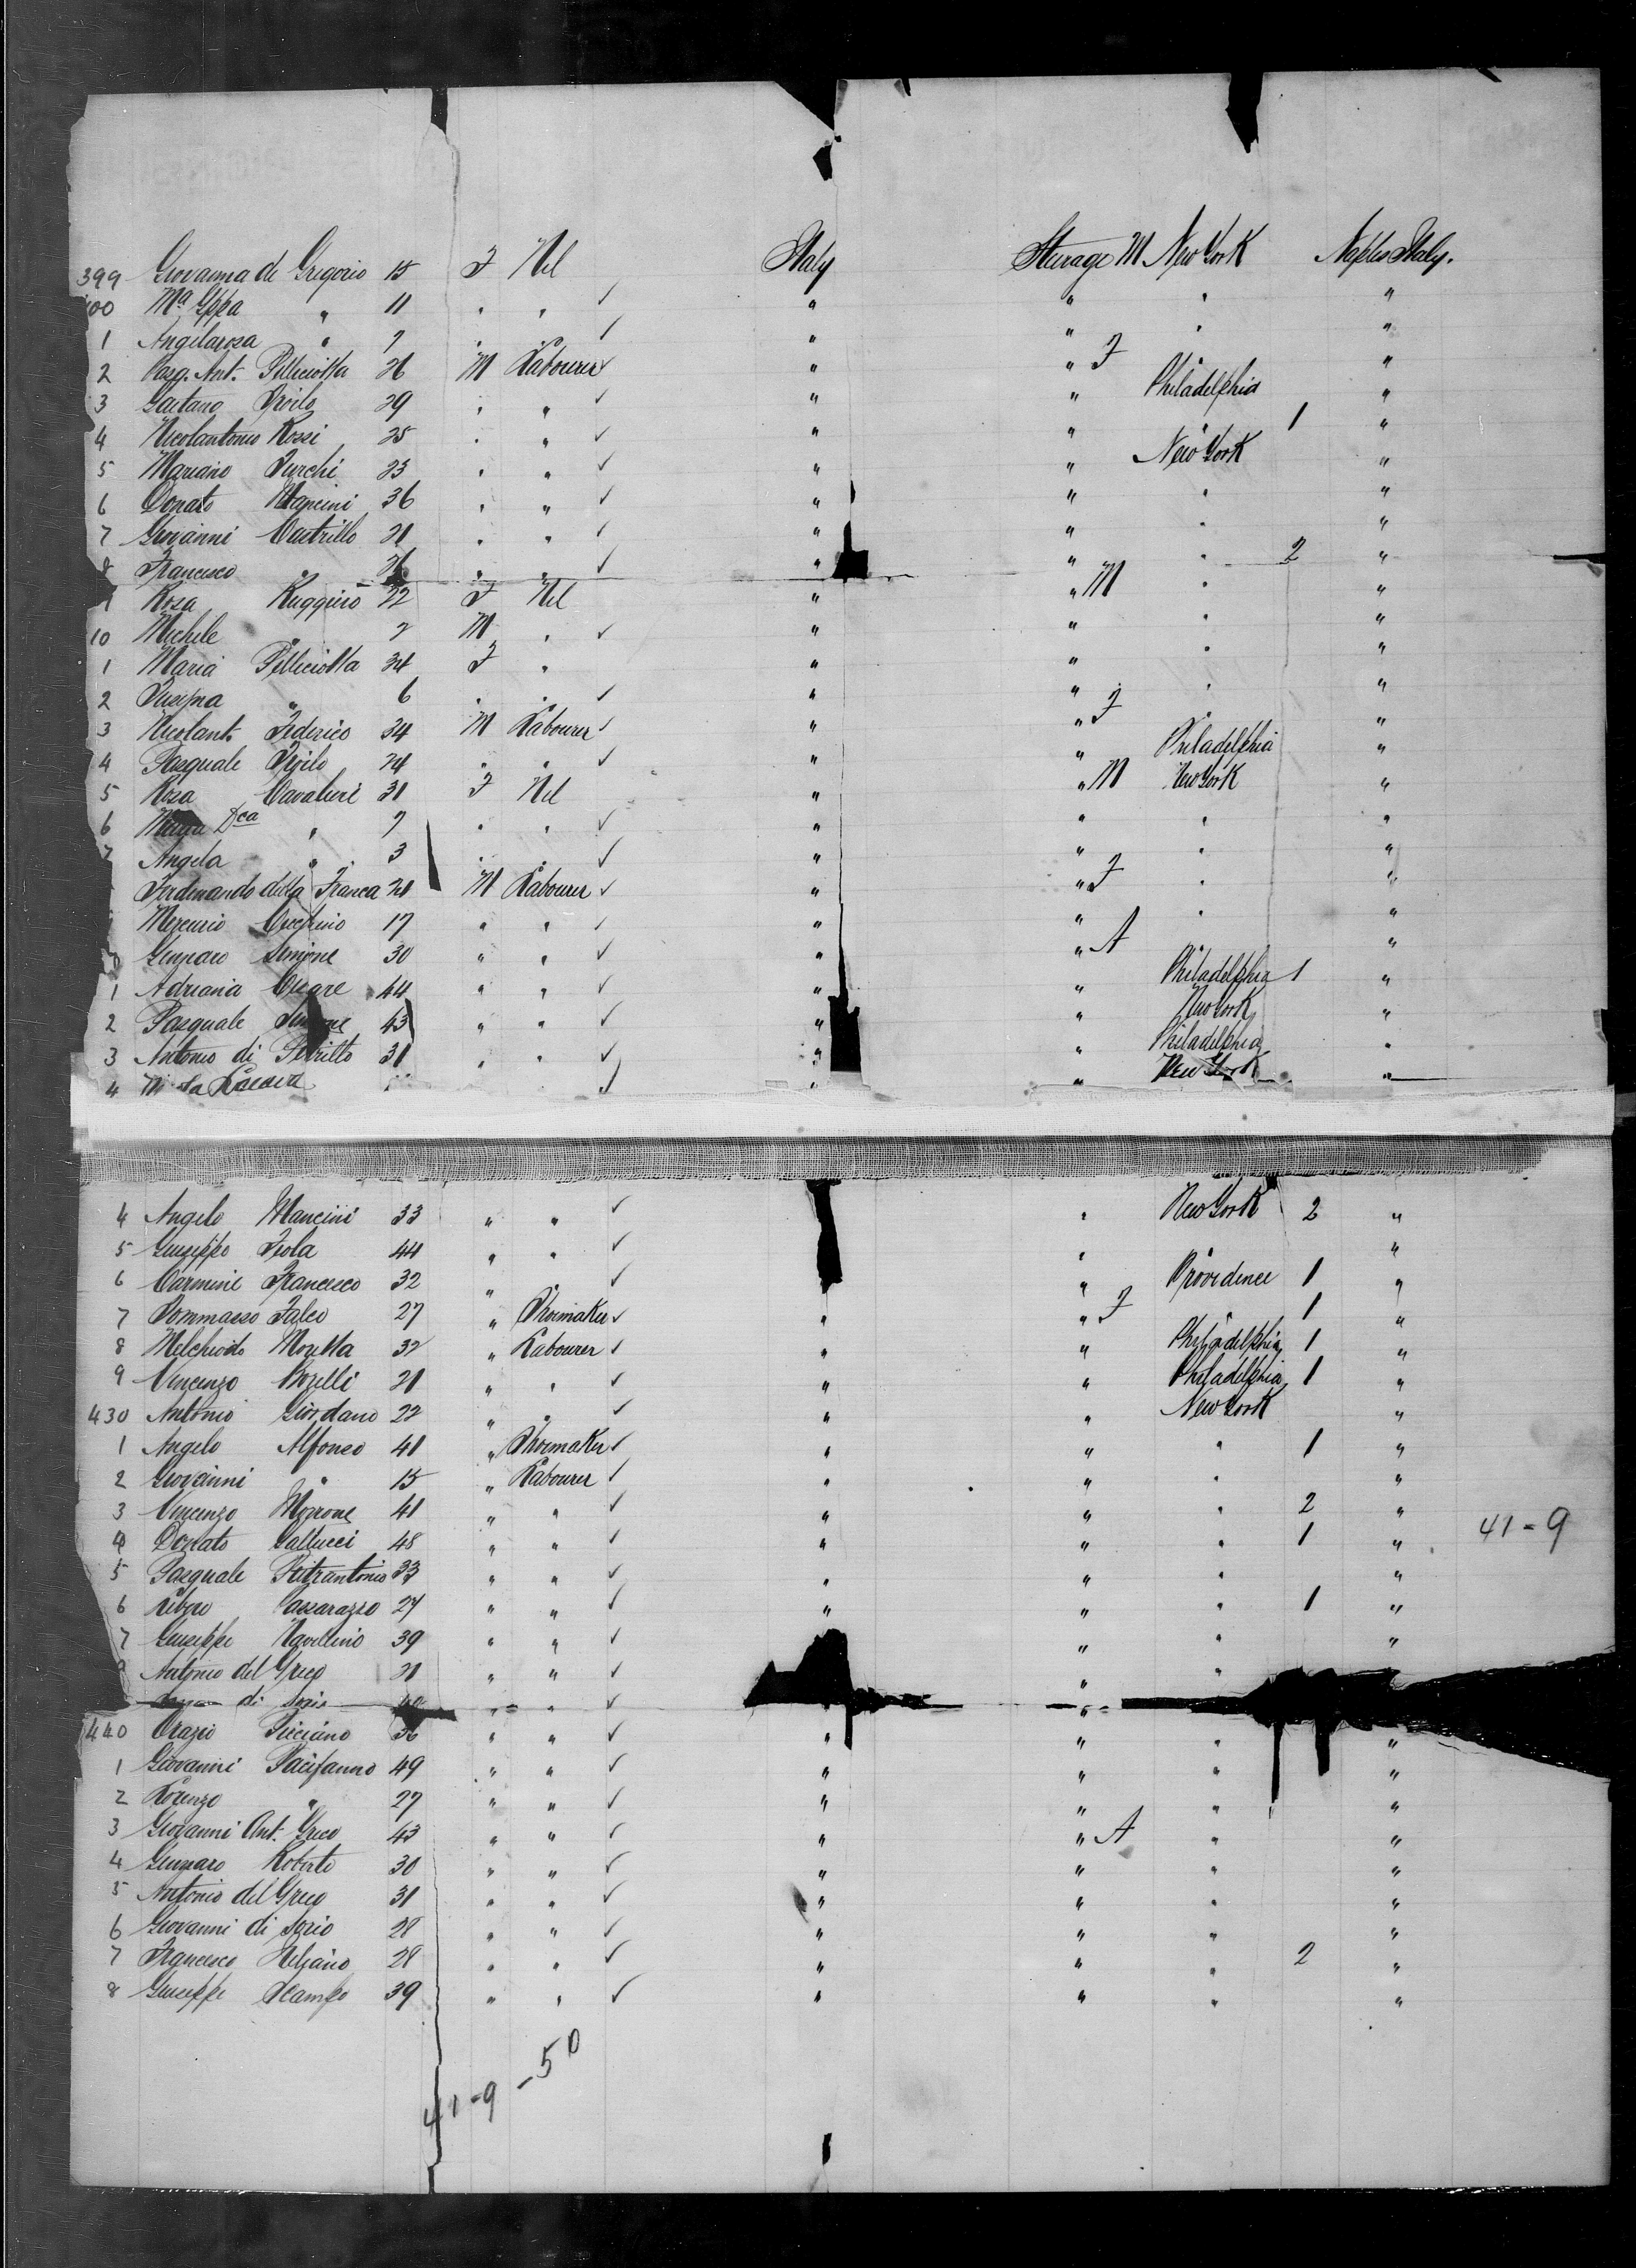 399 Giovanna de Gregorio 15 F Nil Italy Sterage M New York Naples Italy.
400 Ma Gppa " 11 " " ✓ " " " "
1 Angelarosa " 7 " " ✓ " " " "
2 Pasq. Ant. Pelliciotta 26 M Labourer ✓ " " F " "
3 Gaetano 29 " " ✓ " " Philadelphia "
4 Nicolantonio Rossi 25 " " ✓ " " " 1 "
5 Mariano Turchi 23 " " ✓ " " New York "
6 Donato Mancini 36 " " ✓ " " " "
7 Giovanni Castrillo 21 " " ✓ " " " "
8 Francesco " " " ✓ " " " 2 "
Rosa Ruggiero 22 F Nil " " M " "
10 Michele " 7 M " ✓ " " " "
1 Maria Pelliciotta 34 F " " " " "
2 " 6 " " ✓ " " " "
3 Nicolant. Federico 34 M Labourer ✓ " " F " "
4 Pasquale 24 " " ✓ " " Philadelphia "
5 Rosa Cavalieri 31 F Nil " " M New York "
6 Maria Dca " 7 " " ✓ " " " "
7 Angela " 3 " " ✓ " " " "
Ferdinando della Franca 21 M Labourer ✓ " " F " "
Mercurio 17 " " ✓ " " " "
Gennaro Simone 30 " " ✓ " " A " "
1 Adriana Cesare 44 " " ✓ " " Philadelphia 1 "
2 Pasquale Simone 43 " " ✓ " " New York "
3 Antonio di Petrillo 31 " " ✓ " " Philadelphia "
4 ✓ " " New York "
4 Angelo Mancini 33 " " ✓ " New York 2 "
5 Giuseppe Fiola 44 " " ✓ " "
6 Carmine Francesco 32 " " ✓ " " Providence 1 "
7 Tommasso Falco 27 " Shoemaker ✓ " " F " 1 "
8 Melchiodo 32 " Labourer ✓ " " Philadelphia 1 "
9 Vincenzo Borelli 21 " " ✓ " " Philadelphia 1 "
430 Antonio Giordano 22 " " ✓ " " New York "
1 Angelo Alfonso 41 " Shoemaker ✓ " " " 1 "
2 Giovanni " 15 " Labourer ✓ " " " "
3 Vincenzo Morrone 41 " " ✓ " " " 2 "
4 Donato Gallucci 48 " " ✓ " " " 1 "
41-9
5 Pasquale Pietrantonio 33 " " ✓ " " " "
6 Libero 27 " " ✓ " " " 1 "
7 Giuseppe Navellino 39 " " ✓ " " " "
Antonio del Greco 21 " " ✓ " " "
di Iorio 40 " " ✓ " "
440 Orazio Picciano 36 " " ✓ " " " "
1 Giovanni Pacifanno 49 " " ✓ " " " "
2 Lorenzo " 27 " " ✓ " " " "
3 Giovanni Ant. Greco 43 " " ✓ " " A " "
4 Gennaro Roberto 30 " " ✓ " " " "
5 Antonio del Greco 31 " " ✓ " " " "
6 Giovanni di Iorio 28 " " ✓ " " " "
7 Francesco 28 " " ✓ " " " 2 "
8 Giuseppe Scampo 39 " " ✓ " " " "
41-9-50